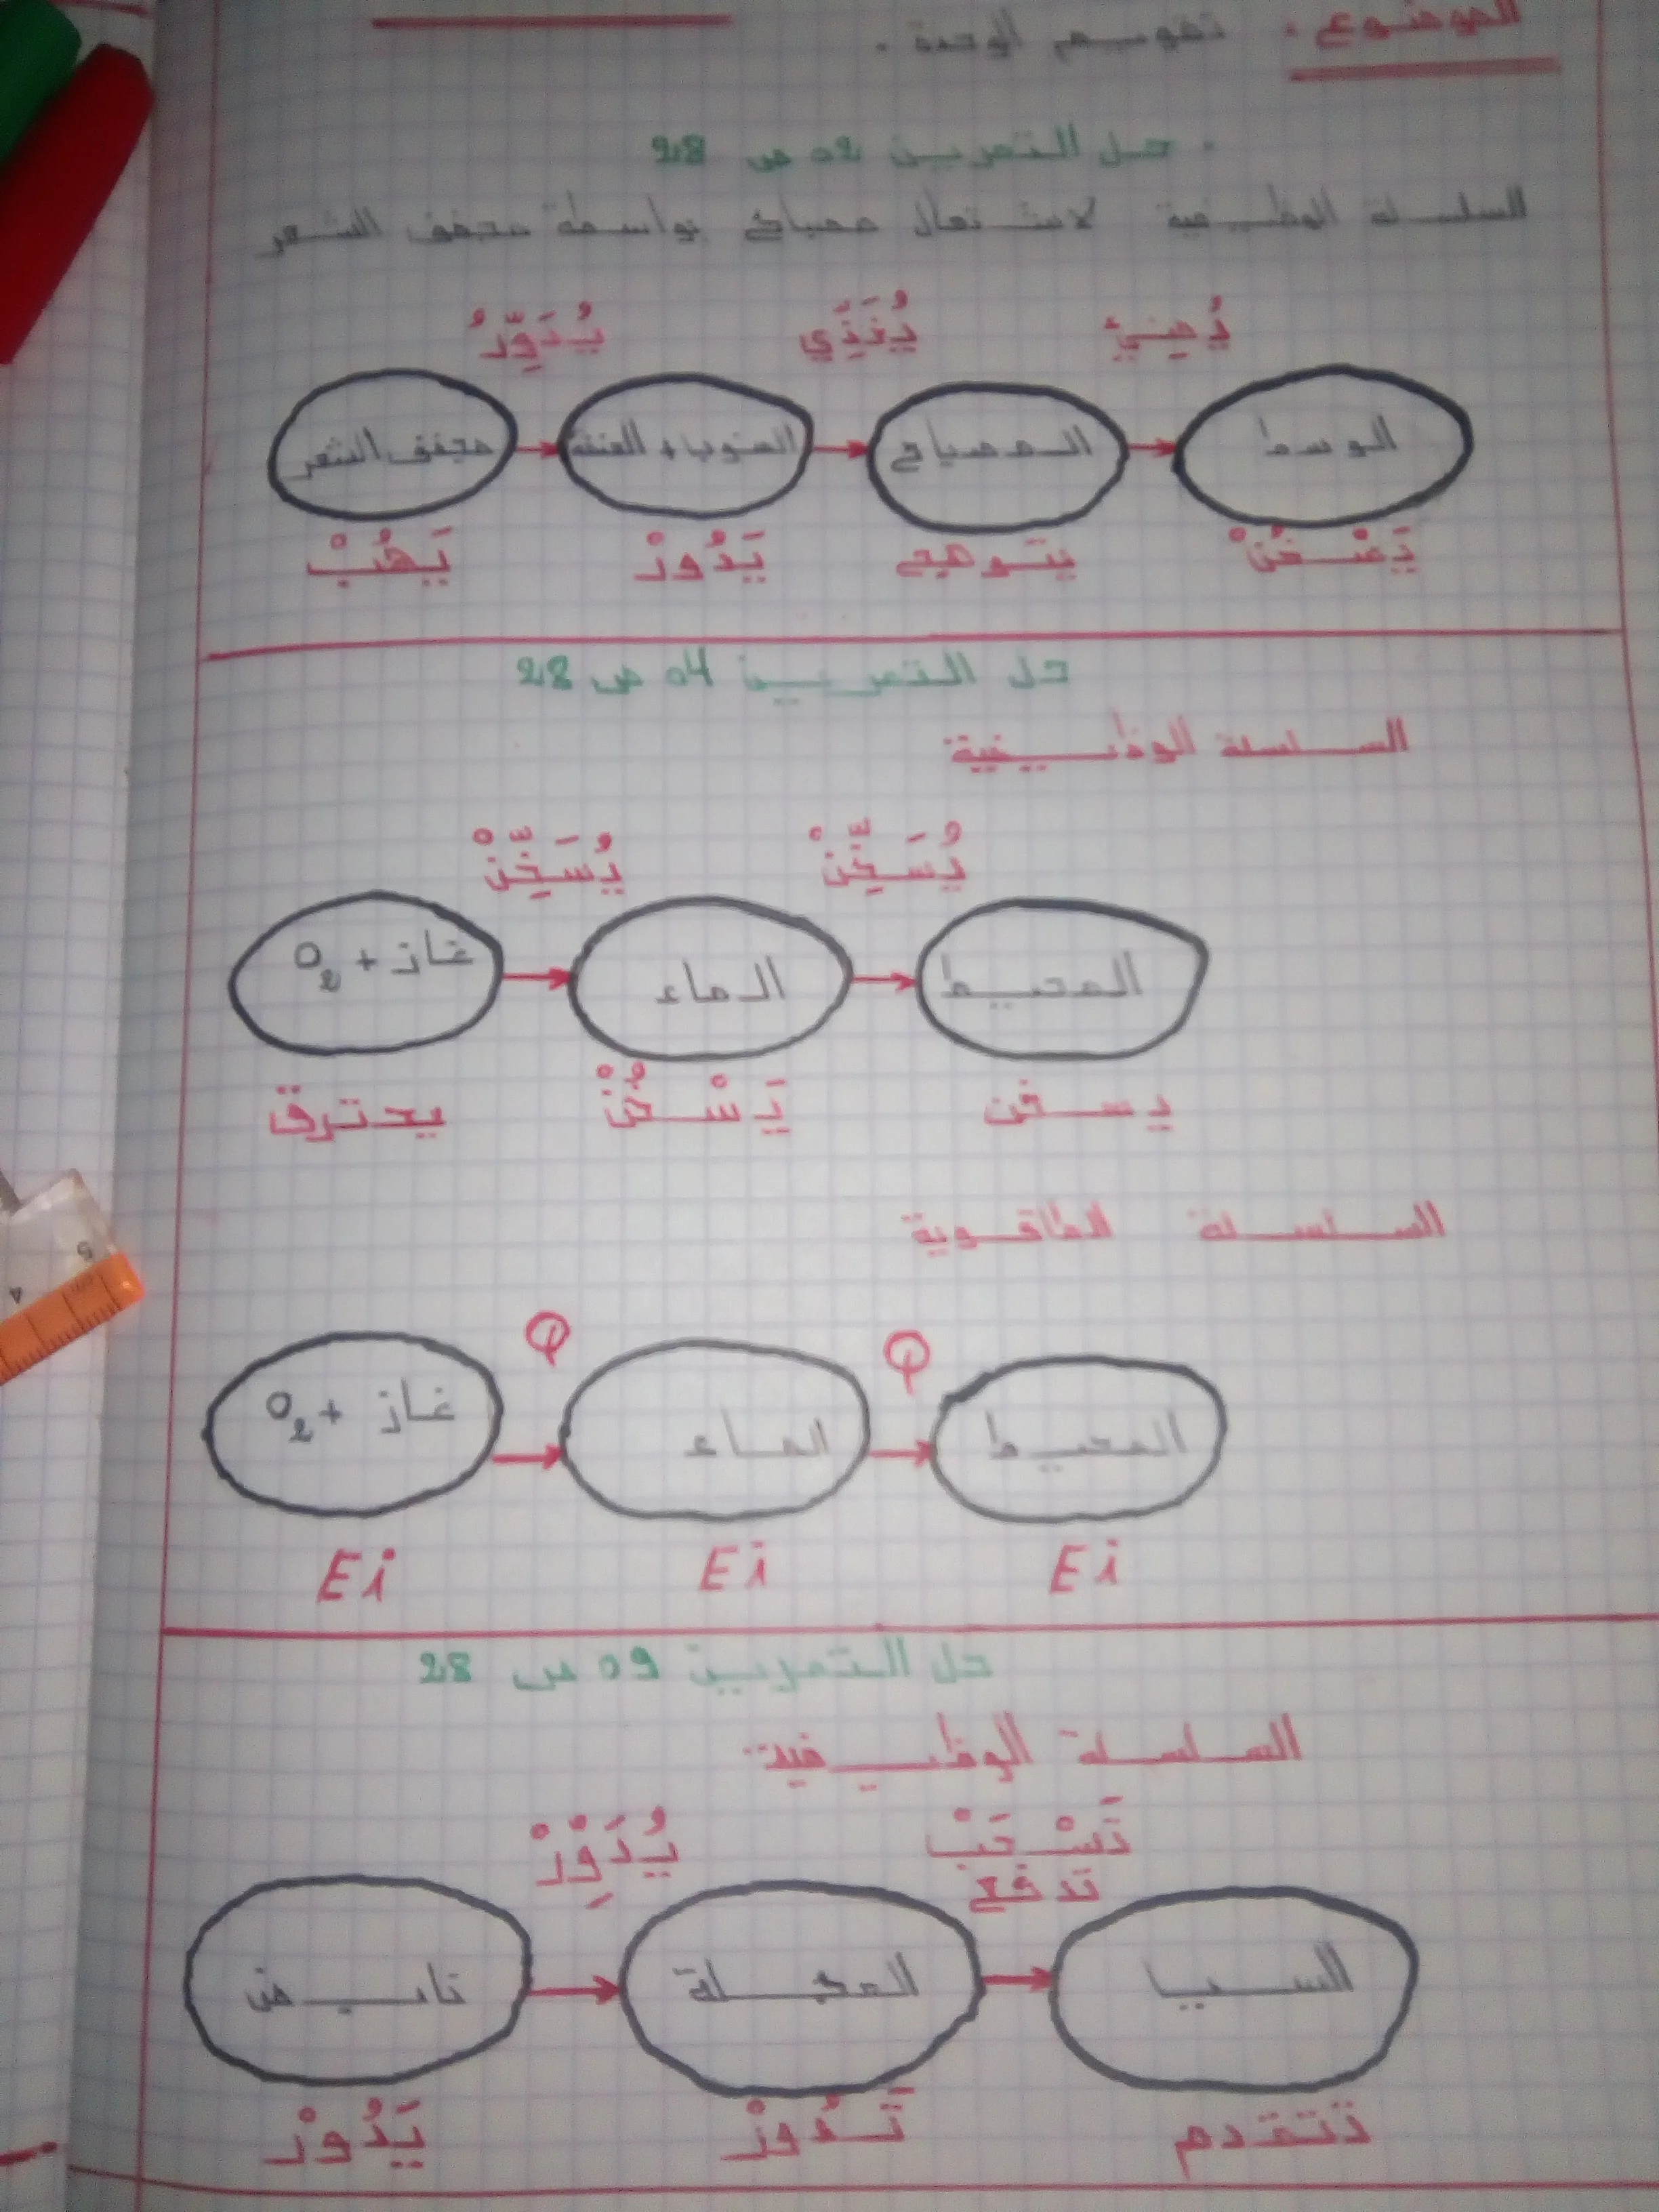 الموضوع: تقويم الوحدة.
. حل التمرين 02 ص 28
السلسلة الوظيفية لاشتعال مصباح بواسطة مجفف الشعر
يُدَوِّرُ يُغَذِّي يُضيئ
مجفف الشعر المنوب + العنفة المصباح الوسط
يَهُبْ يَدُورْ يتوهج يَسْخُنْ
حل التمرين 04 ص 28
السلسلة الوظيفية:
يُسَخِّنْ يُسَخِّنْ
غاز + O₂ الماء المحيط
يحترق يَسْخُنْ يسخن
السلسلة الطاقوية
Q Q
غاز + O₂ الماء المحيط
Ei Ei Ei
حل التمرين 09 ص 28
السلسلة الوظيفية:
يُدَوِرْ تَسْحَبْ
تدفع
نابض العجلة
يَدُورْ تَدُورْ تتقدم